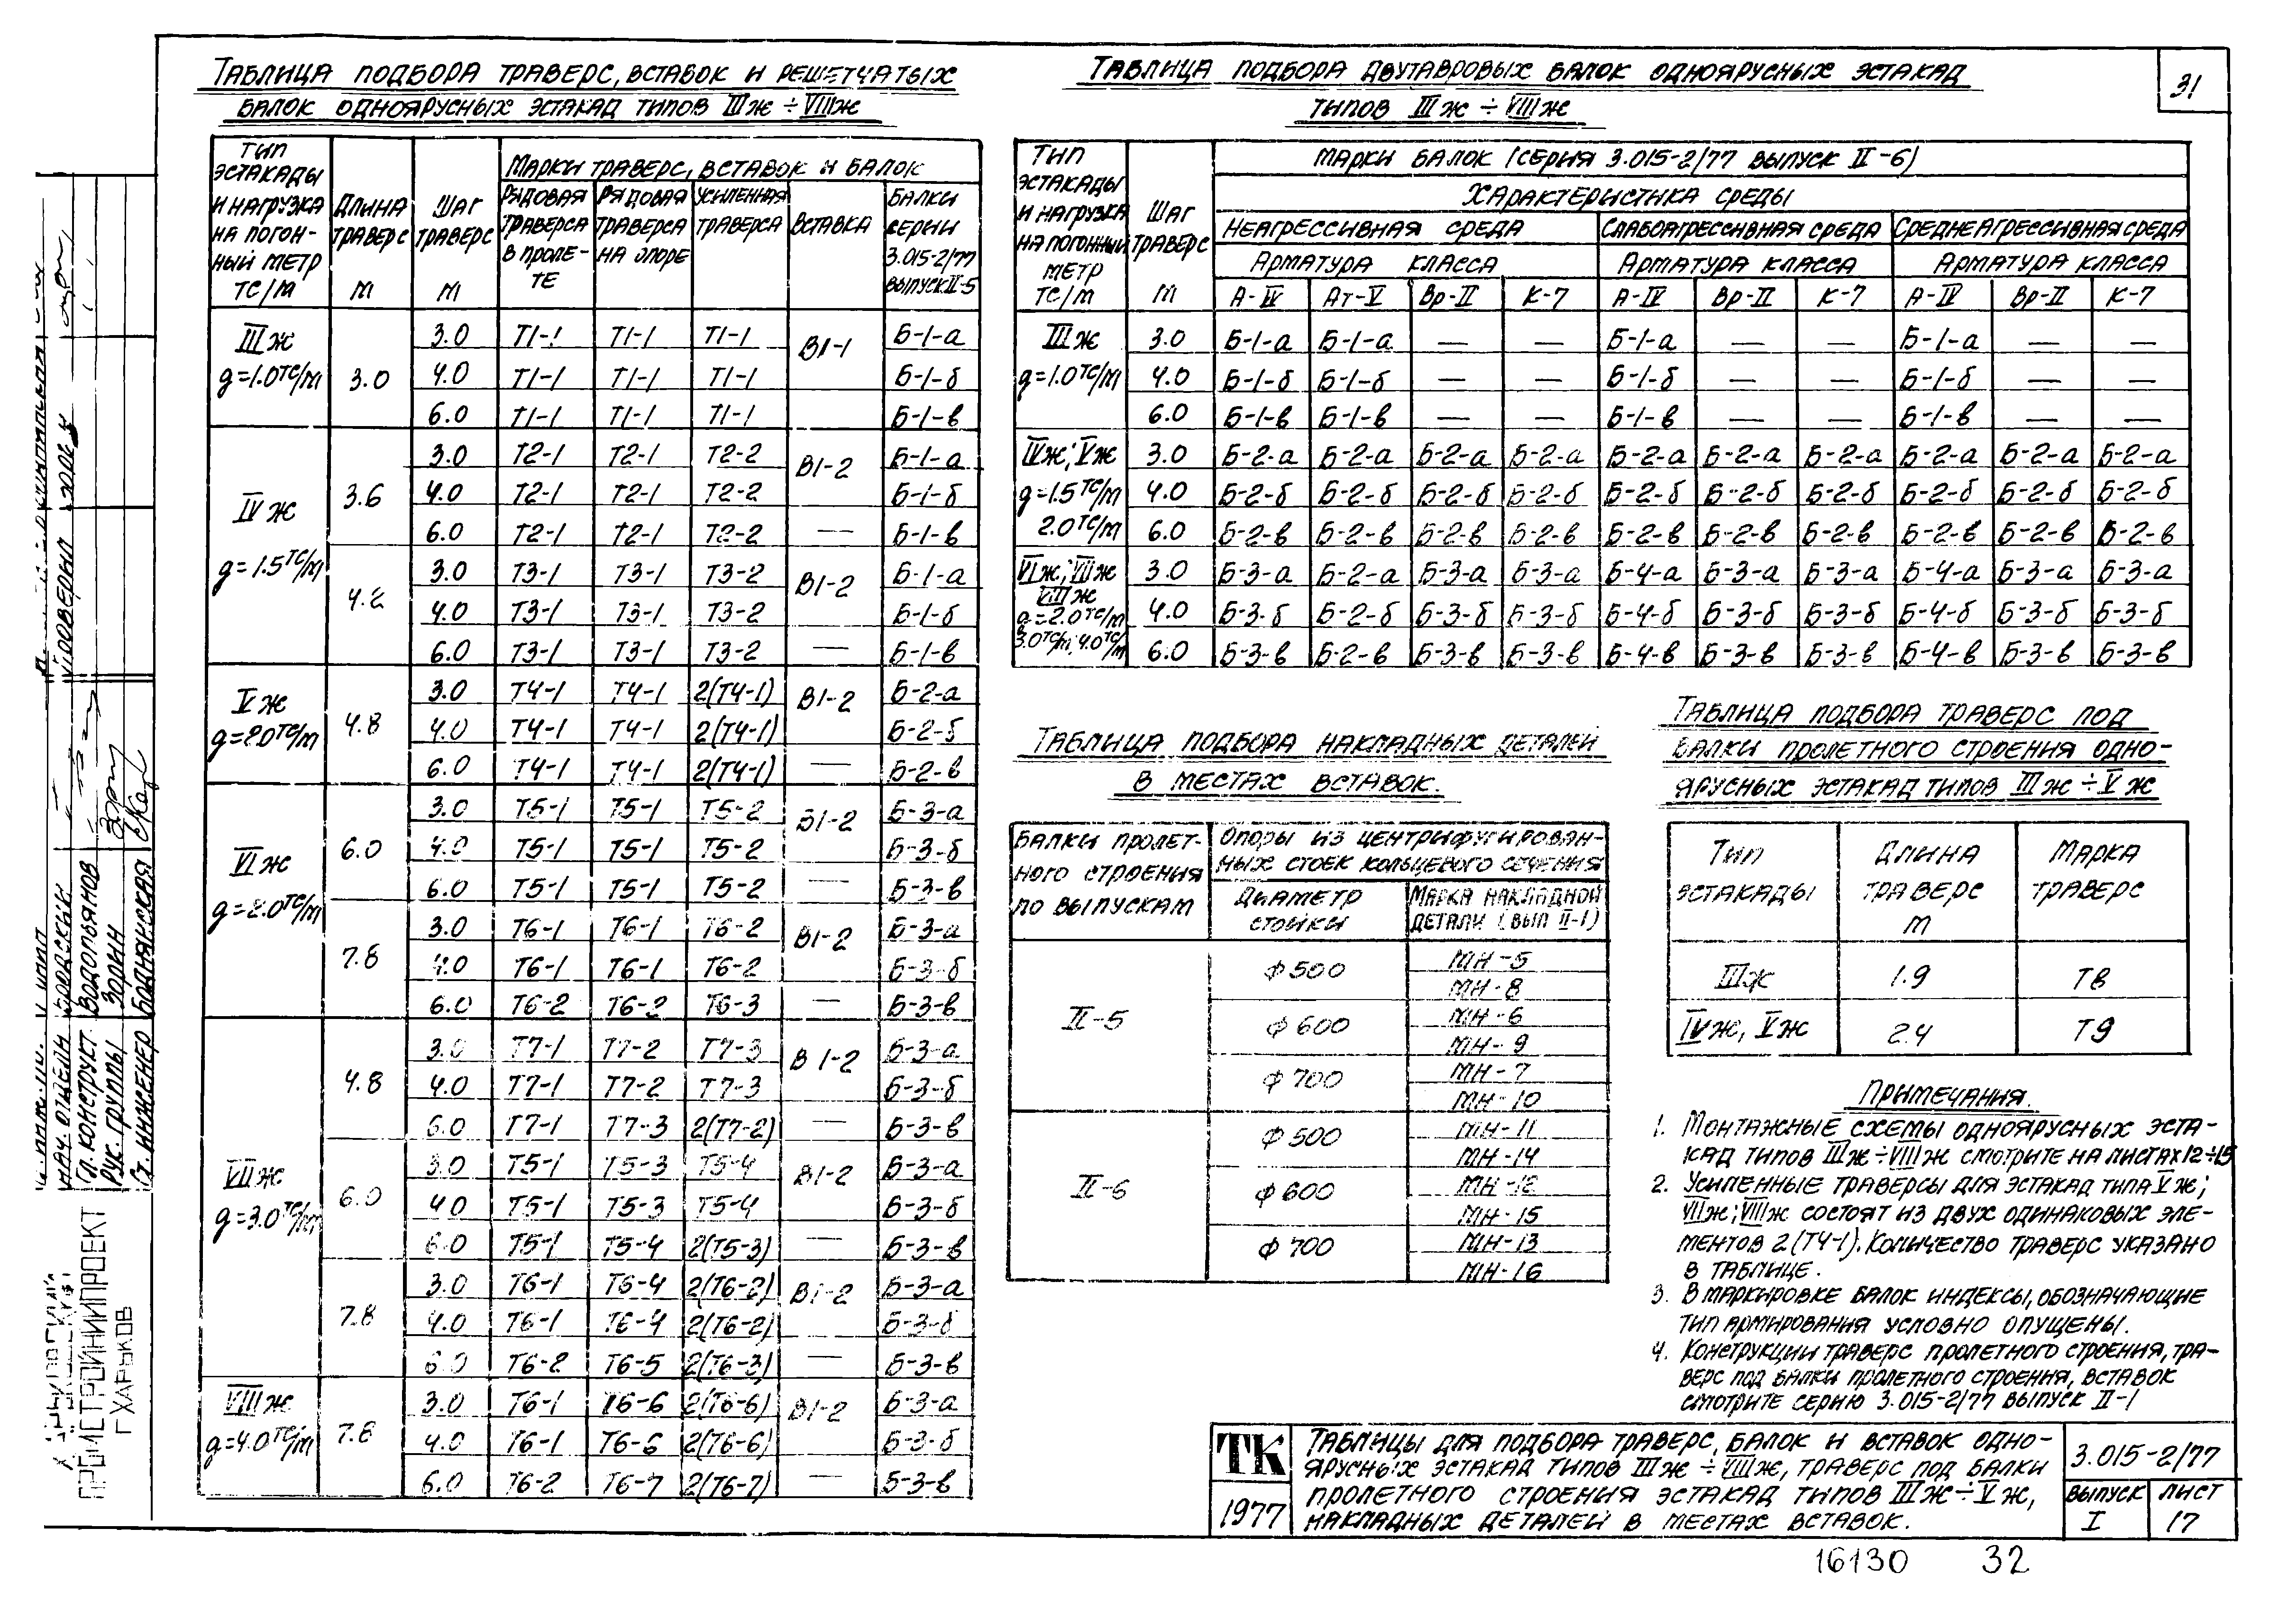 31
Таблица подбора траверс, вставок и решетчатых
балок одноярусных эстакад типов IIIж ÷ VIIIж
Тип эстакады и нагрузка на погонный метр тс/м | Длина траверс м | Шаг траверс м | Марки траверс, вставок и балок
Рядовая траверса в пролете | Рядовая траверса на опоре | Усиленная траверса | Вставка | Балки серии 3.015-2/77 выпуск II-5
IIIж g=1.0 тс/м | 3.0 | 3.0 | Т1-1 | Т1-1 | Т1-1 | В1-1 | Б-1-а
4.0 | Т1-1 | Т1-1 | Т1-1 | Б-1-б
6.0 | Т1-1 | Т1-1 | Т1-1 | Б-1-в
IVж g=1.5 тс/м | 3.6 | 3.0 | Т2-1 | Т2-1 | Т2-2 | В1-2 | Б-1-а
4.0 | Т2-1 | Т2-1 | Т2-2 | Б-1-б
6.0 | Т2-1 | Т2-1 | Т2-2 | — | Б-1-в
4.2 | 3.0 | Т3-1 | Т3-1 | Т3-2 | В1-2 | Б-1-а
4.0 | Т3-1 | Т3-1 | Т3-2 | Б-1-б
6.0 | Т3-1 | Т3-1 | Т3-2 | — | Б-1-в
Vж g=2.0 тс/м | 4.8 | 3.0 | Т4-1 | Т4-1 | 2(Т4-1) | В1-2 | Б-2-а
4.0 | Т4-1 | Т4-1 | 2(Т4-1) | Б-2-б
6.0 | Т4-1 | Т4-1 | 2(Т4-1) | — | Б-2-в
VIж g=2.0 тс/м | 6.0 | 3.0 | Т5-1 | Т5-1 | Т5-2 | В1-2 | Б-3-а
4.0 | Т5-1 | Т5-1 | Т5-2 | Б-3-б
6.0 | Т5-1 | Т5-1 | Т5-2 | — | Б-3-в
7.8 | 3.0 | Т6-1 | Т6-1 | Т6-2 | В1-2 | Б-3-а
4.0 | Т6-1 | Т6-1 | Т6-2 | Б-3-б
6.0 | Т6-2 | Т6-2 | Т6-3 | — | Б-3-в
VIIж g=3.0 тс/м | 4.8 | 3.0 | Т7-1 | Т7-2 | Т7-3 | В1-2 | Б-3-а
4.0 | Т7-1 | Т7-2 | Т7-3 | Б-3-б
6.0 | Т7-1 | Т7-3 | 2(Т7-2) | — | Б-3-в
6.0 | 3.0 | Т5-1 | Т5-3 | Т5-4 | В1-2 | Б-3-а
4.0 | Т5-1 | Т5-3 | Т5-4 | Б-3-б
6.0 | Т5-1 | Т5-4 | 2(Т5-3) | — | Б-3-в
7.8 | 3.0 | Т6-1 | Т6-4 | 2(Т6-2) | В1-2 | Б-3-а
4.0 | Т6-1 | Т6-4 | 2(Т6-2) | Б-3-б
6.0 | Т6-2 | Т6-5 | 2(Т6-3) | — | Б-3-в
VIIIж g=4.0 тс/м | 7.8 | 3.0 | Т6-1 | Т6-6 | 2(Т6-6) | В1-2 | Б-3-а
4.0 | Т6-1 | Т6-6 | 2(Т6-6) | Б-3-б
6.0 | Т6-2 | Т6-7 | 2(Т6-7) | — | Б-3-в
Таблица подбора двутавровых балок одноярусных эстакад
типов IIIж ÷ VIIIж
Тип эстакады и нагрузка на погонный метр тс/м | Шаг траверс м | Марки балок (серия 3.015-2/77 выпуск II-6)
Характеристика среды
Неагрессивная среда | Слабоагрессивная среда | Среднеагрессивная среда
Арматура класса | Арматура класса | Арматура класса
А-IV | Ат-V | Вр-II | К-7 | А-IV | Вр-II | К-7 | А-IV | Вр-II | К-7
IIIж g=1.0 тс/м | 3.0 | Б-1-а | Б-1-а | — | — | Б-1-а | — | — | Б-1-а | — | —
4.0 | Б-1-б | Б-1-б | — | — | Б-1-б | — | — | Б-1-б | — | —
6.0 | Б-1-в | Б-1-в | — | — | Б-1-в | — | — | Б-1-в | — | —
IVж; Vж g=1.5 тс/м 2.0 тс/м | 3.0 | Б-2-а | Б-2-а | Б-2-а | Б-2-а | Б-2-а | Б-2-а | Б-2-а | Б-2-а | Б-2-а | Б-2-а
4.0 | Б-2-б | Б-2-б | Б-2-б | Б-2-б | Б-2-б | Б-2-б | Б-2-б | Б-2-б | Б-2-б | Б-2-б
6.0 | Б-2-в | Б-2-в | Б-2-в | Б-2-в | Б-2-в | Б-2-в | Б-2-в | Б-2-в | Б-2-в | Б-2-в
VIж; VIIж VIIIж g=2.0 тс/м 3.0 тс/м, 4.0 тс/м | 3.0 | Б-3-а | Б-2-а | Б-3-а | Б-3-а | Б-4-а | Б-3-а | Б-3-а | Б-4-а | Б-3-а | Б-3-а
4.0 | Б-3-б | Б-2-б | Б-3-б | Б-3-б | Б-4-б | Б-3-б | Б-3-б | Б-4-б | Б-3-б | Б-3-б
6.0 | Б-3-в | Б-2-в | Б-3-в | Б-3-в | Б-4-в | Б-3-в | Б-3-в | Б-4-в | Б-3-в | Б-3-в
Таблица подбора накладных деталей
в местах вставок.
Балки пролетного строения по выпускам | Опоры из центрифугированных стоек кольцевого сечения
Диаметр стойки | Марка накладной детали (вып II-1)
II-5 | ф 500 | МН-5
МН-8
ф 600 | МН-6
МН-9
ф 700 | МН-7
МН-10
II-6 | ф 500 | МН-11
МН-14
ф 600 | МН-12
МН-15
ф 700 | МН-13
МН-16
Таблица подбора траверс под
балки пролетного строения одно-
ярусных эстакад типов IIIж ÷ Vж
Тип эстакады | Длина траверс м | Марка траверс
IIIж | 1.9 | Т8
IVж, Vж | 2.4 | Т9
Примечания.
1. Монтажные схемы одноярусных эста-
кад типов IIIж ÷ VIIIж смотрите на листах 12÷15
2. Усиленные траверсы для эстакад типа Vж;
VIIж; VIIIж состоят из двух одинаковых эле-
ментов 2(Т4-1). Количество траверс указано
в таблице.
3. В маркировке балок индексы, обозначающие
тип армирования условно опущены.
4. Конструкции траверс пролетного строения, тра-
верс под балки пролетного строения, вставок
смотрите серию 3.015-2/77 выпуск II-1
ТК
1977
Таблицы для подбора траверс, балок и вставок одно-
ярусных эстакад типов IIIж ÷ VIIIж, траверс под балки
пролетного строения эстакад типов IIIж ÷ Vж,
накладных деталей в местах вставок.
3.015-2/77
Выпуск | Лист
I | 17
16130 32
Нач. отдела Бродский
Гл. конструкт. Водопьянов
Рук. группы Зорин
Ст. инженер Боднянская
Проверил
ПРОМСТРОЙНИИПРОЕКТ
Г ХАРЬКОВ